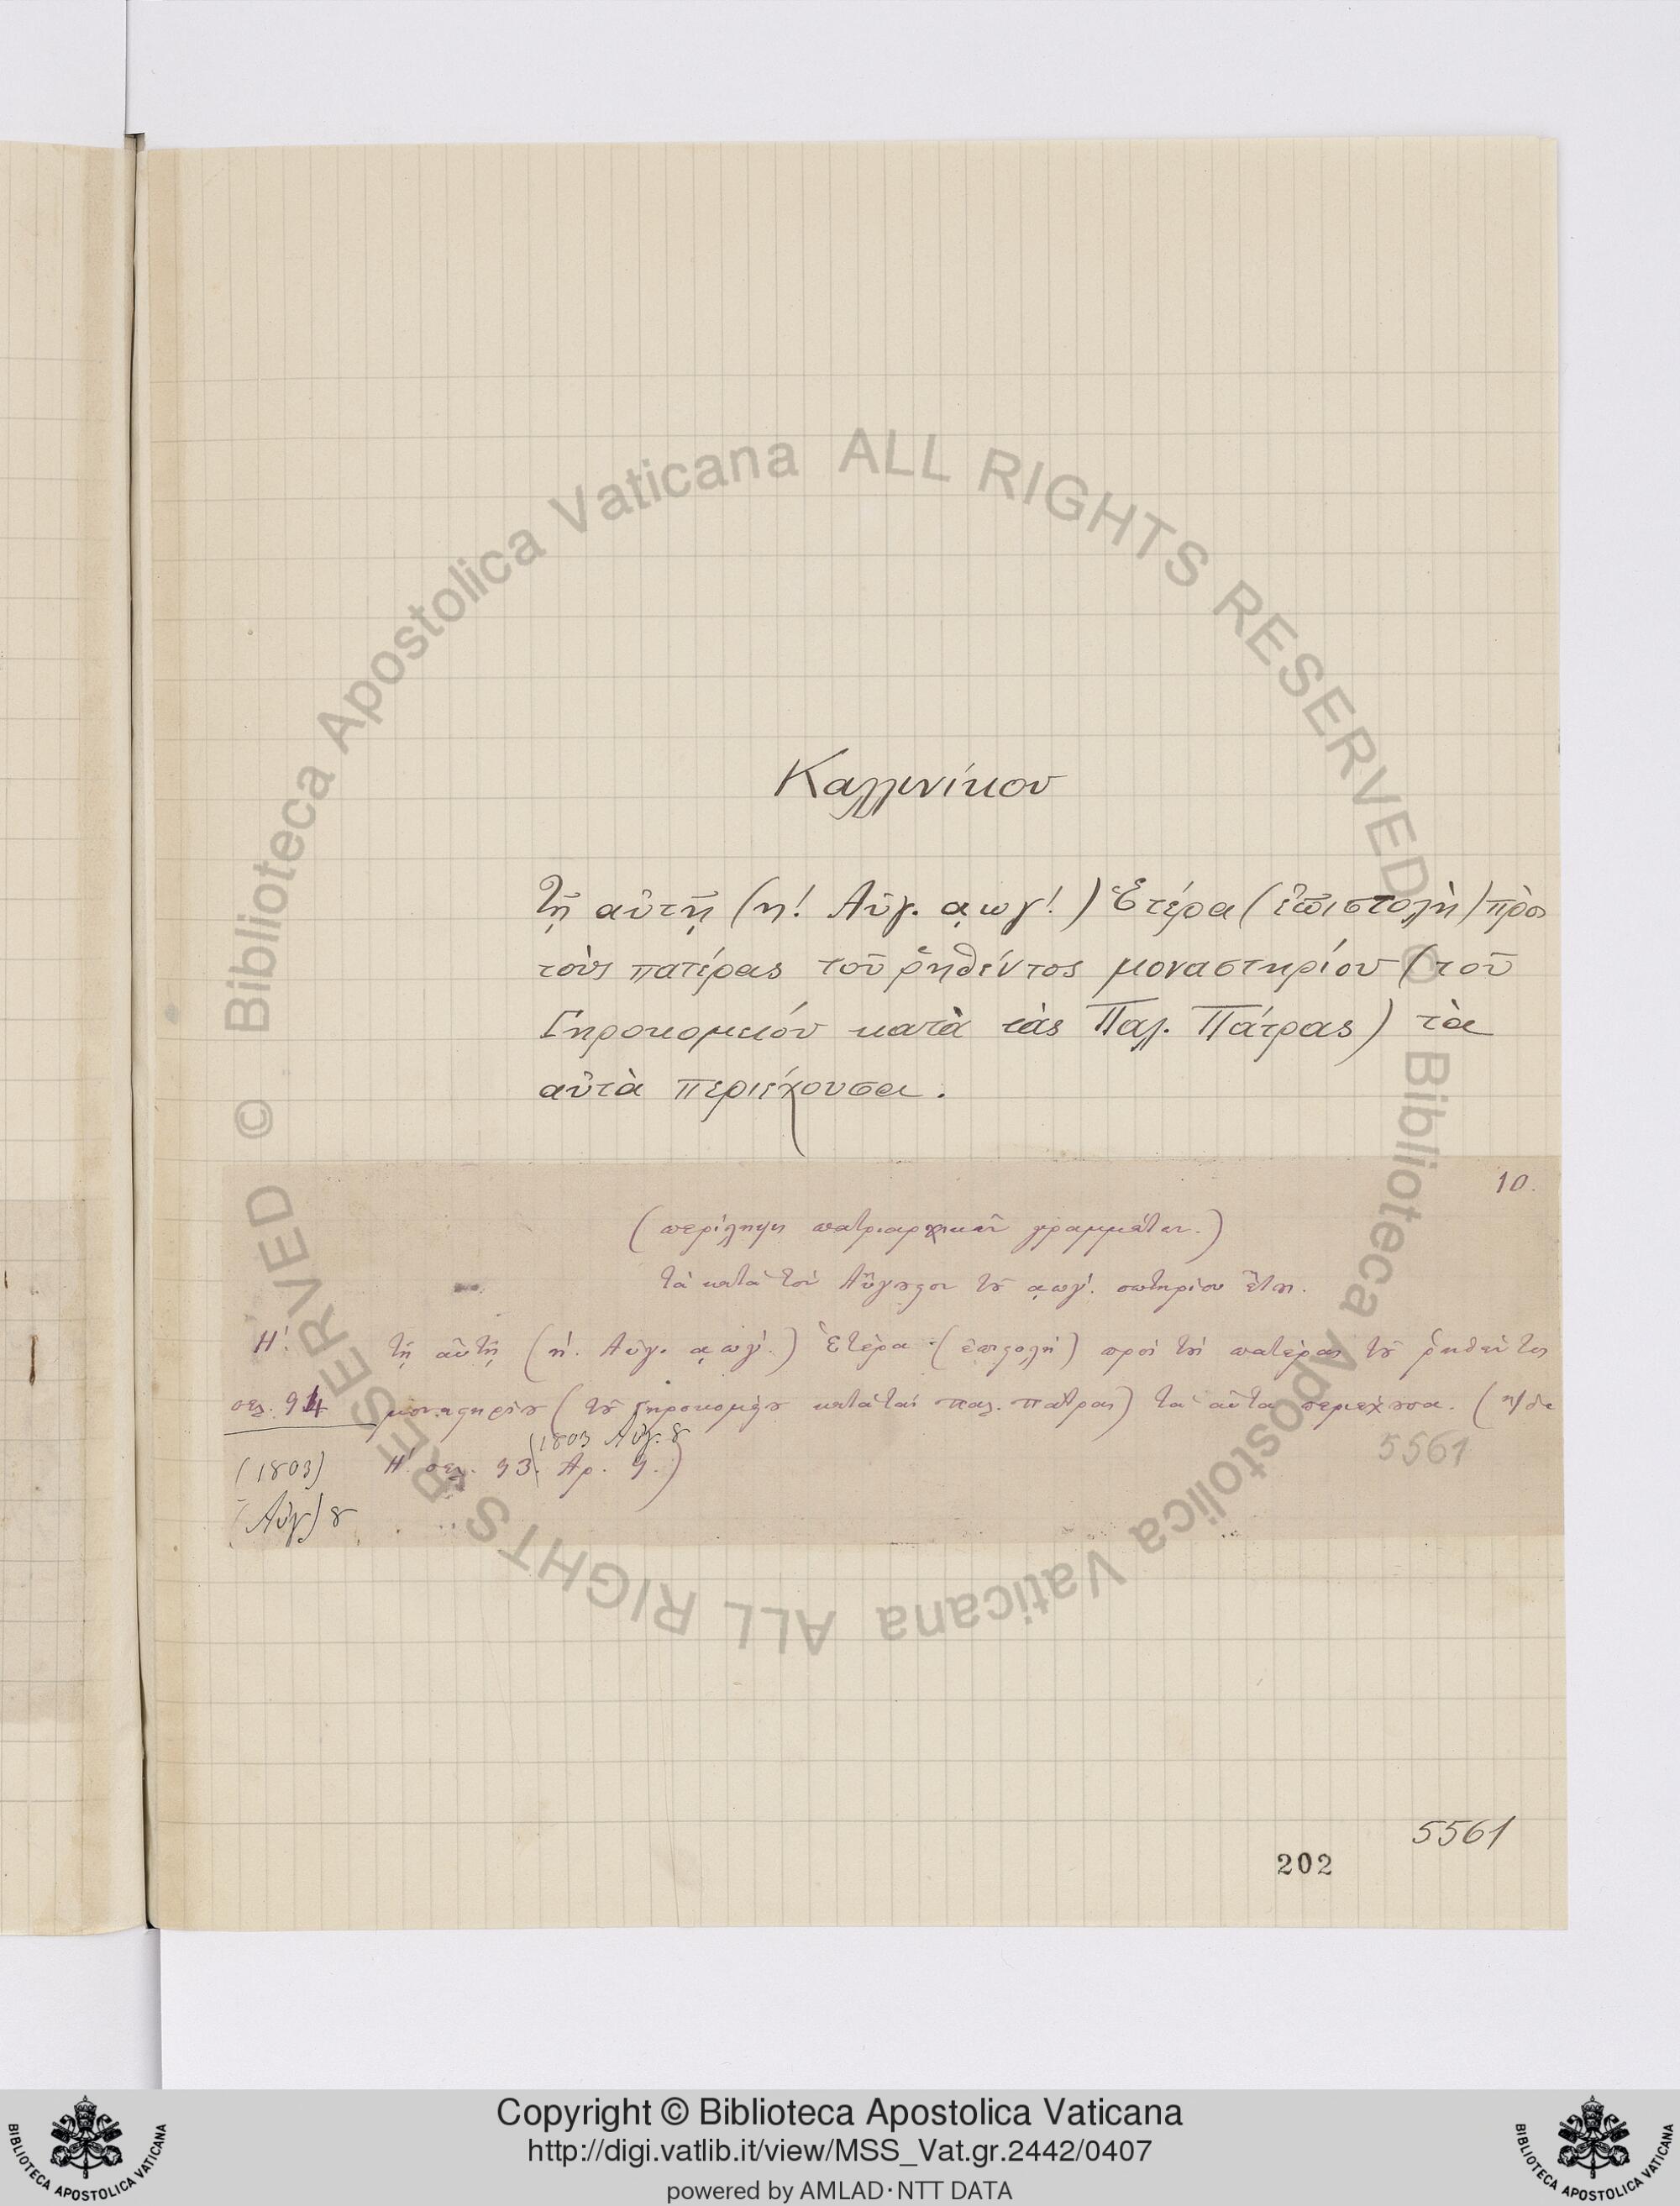 Καλλινίκου
Τῇ αὐτῇ (η! Αὐγ. αωγ!.) Ἑτέρα (ἐπιστολὴ) πρὸς
τοὺς πατέρας τοῦ ῥηθέντος μοναστηρίου (τοῦ
Γηροκομειόυ κατὰ τὰς Παλ. Πάτρας) τὰ
αὐτὰ περιέχουσα.
10.
(περίληψις πατριαρχικῶν γραμμάτων.)
τὰ κατὰ τὸν Αὔγουστον τοῦ αωγ'. σωτηρίου ἔτους.
Η'. τῇ αὐτῇ (η'. Αὐγ. αωγ'.) Ἑτέρα (ἐπιστολὴ) πρὸς τοὺς πατέρας τοῦ ῥηθέντος
σελ. 94 μοναστηρίου (τοῦ Γηροκομείου κατὰ τὰς Παλ. Πάτρας) τὰ αὐτὰ περιέχουσα.
5561
(1803 Αὐγ. 8
(1803) Η' σελ. 93. Αρ. 9.)
Αὐγ) 8
5561
202
© Biblioteca Apostolica Vaticana ALL RIGHTS RESERVED © Biblioteca Apostolica Vaticana ALL RIGHTS RESERVED
BIBLIOTECA APOSTOLICA VATICANA
Copyright © Biblioteca Apostolica Vaticana
http://digi.vatlib.it/view/MSS_Vat.gr.2442/0407
powered by AMLAD·NTT DATA
BIBLIOTECA APOSTOLICA VATICANA